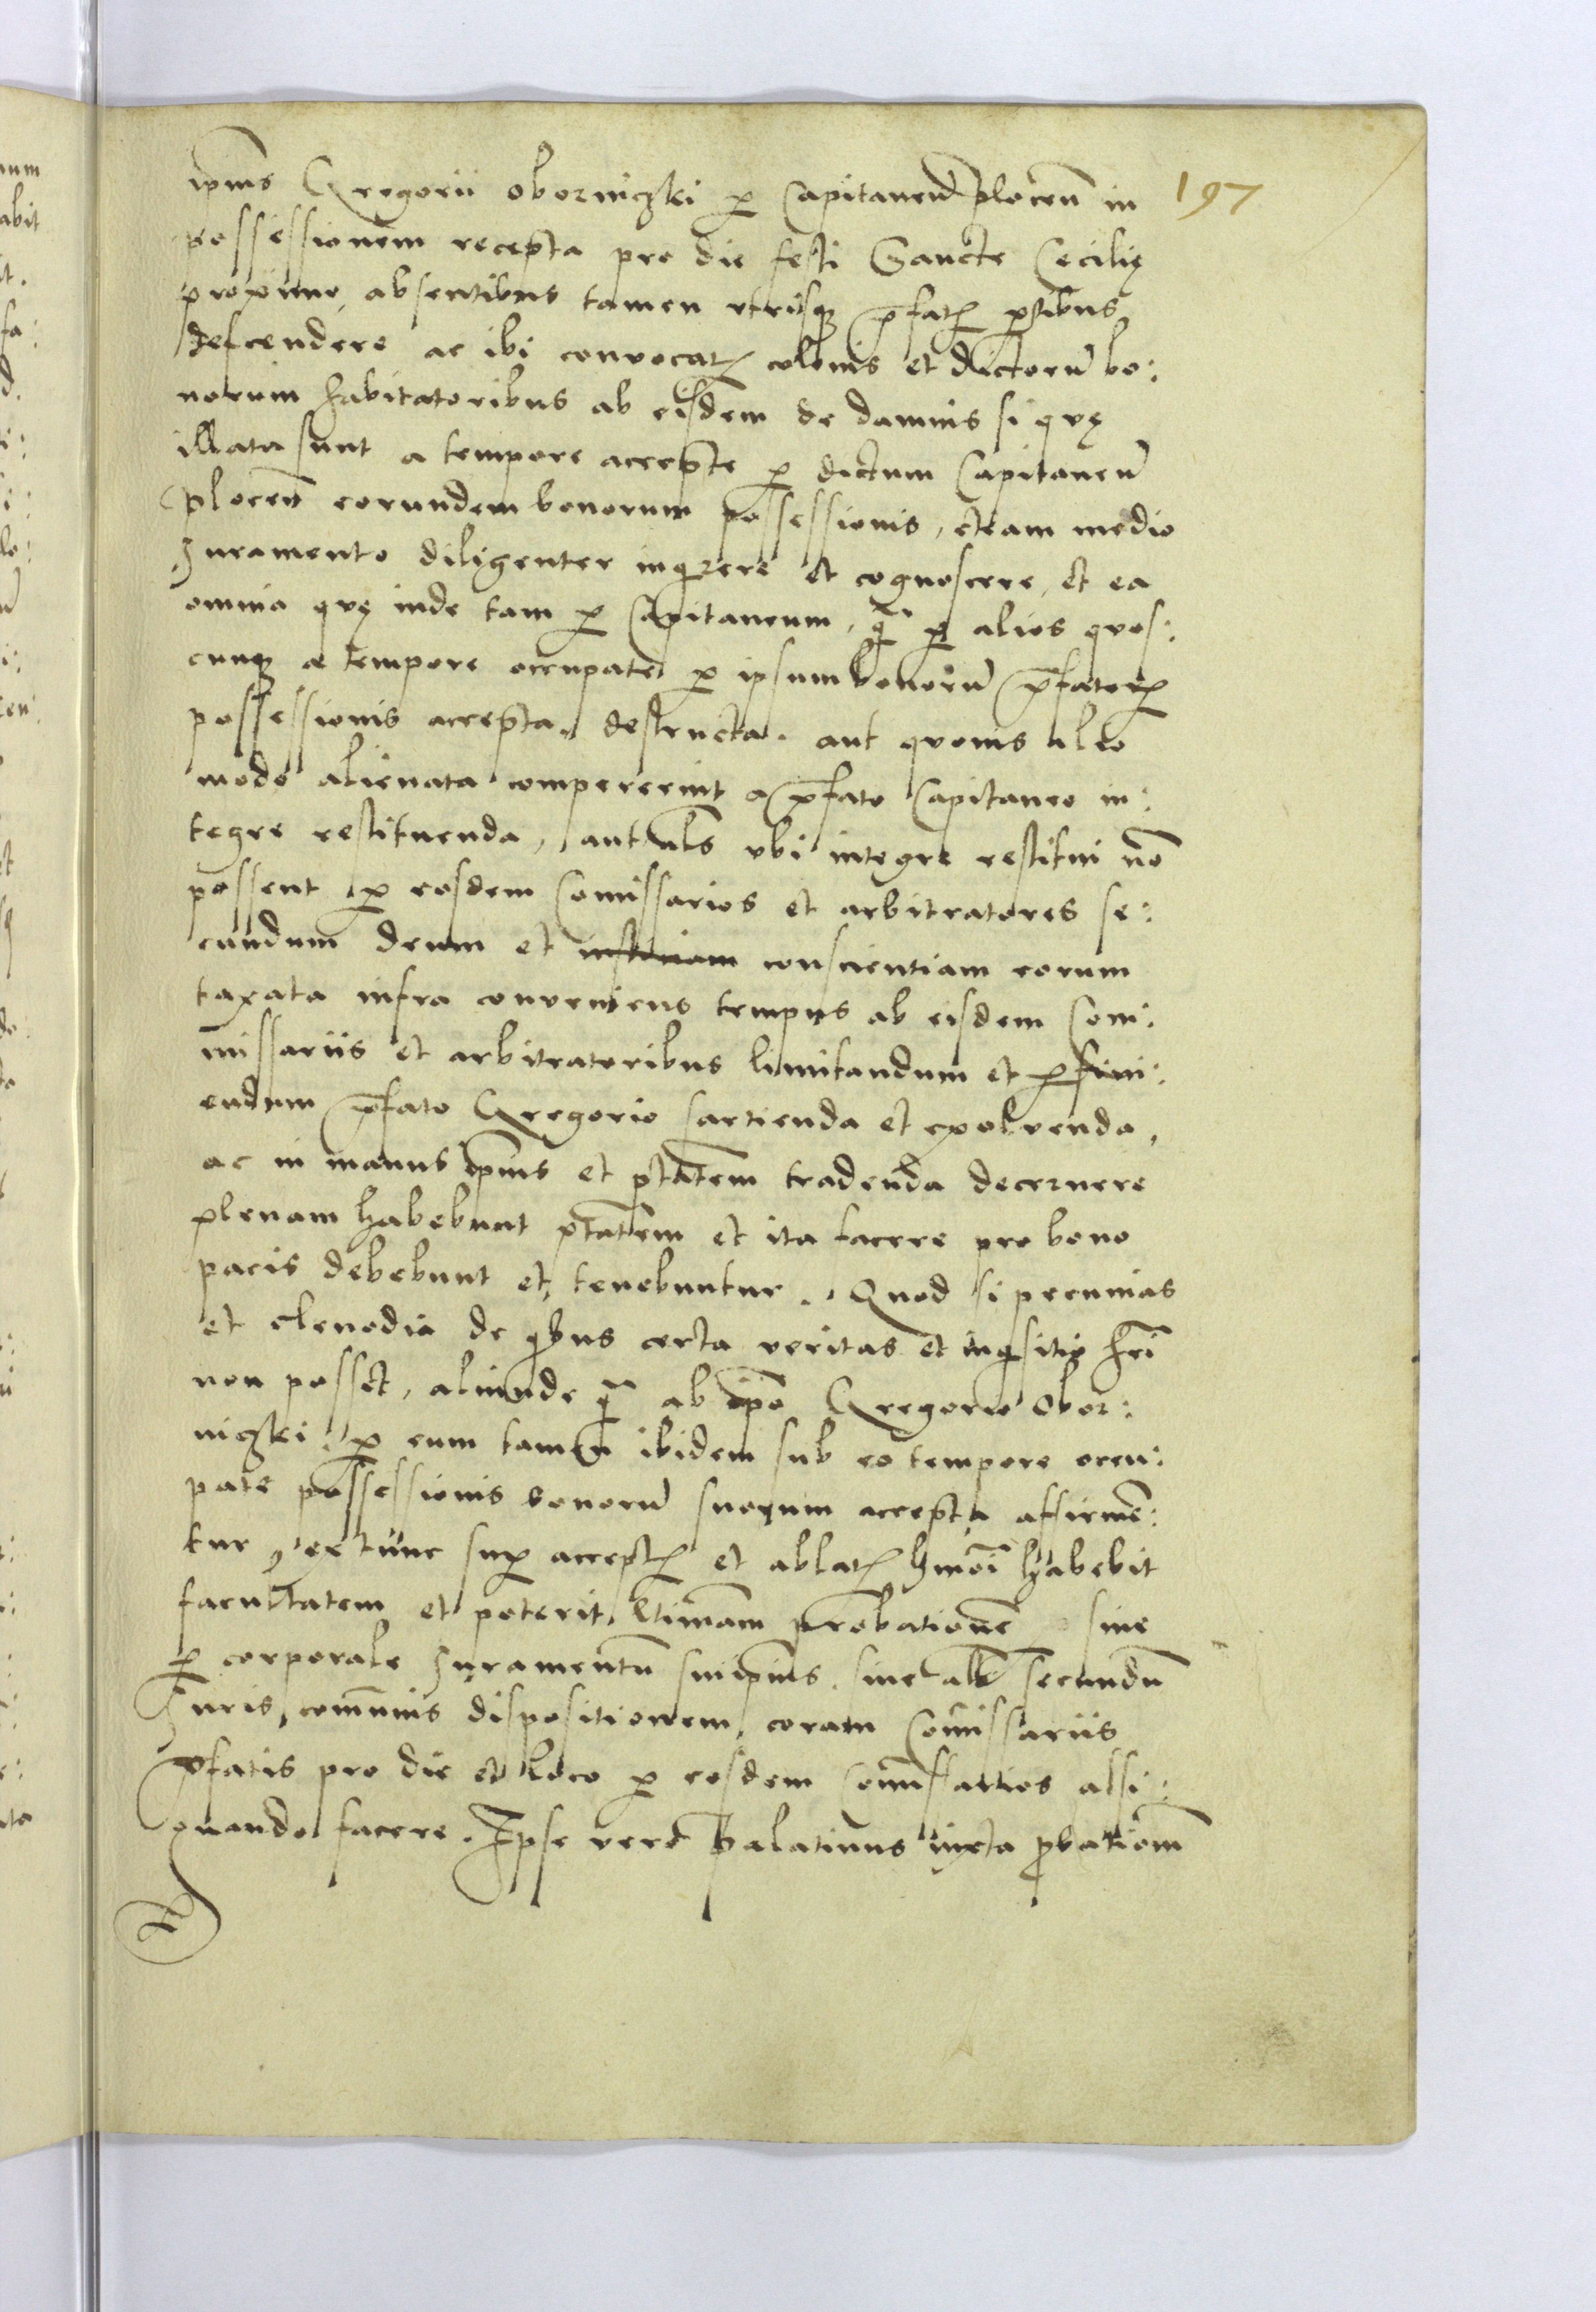 197
ipius Gregorii Oborniczki p Capitaneu plocen in
possessionem recepta pro die festi Sancte Cecilię
proximo, absentibus tamen utrisq pfatis ptibus
descendere ac ibi convocatis colonis et dictoru bo:
norum habitatoribus ab eisdem de damnis si quę
illata sunt a tempore accepte p dictum Capitaneu
plocen eorundem bonorum possessionis, eteam medio
Juramento diligenter inqrere et cognoscere, et ea
omnia quę inde tam p Capitaneum, q p alios quos:
cunq a tempore occupate p ipsum bonoru pfator
possessionis accepta, destructa, aut quovis alio
modo alienata compererint a pfato Capitaneo in:
tegre restituenda, aut als ubi integre restitui no
possent p eosdem Comissarios et arbitratores se:
cundum deum et conscientiam eorum
taxata infra conveniens tempus ab eisdem Com:
missariis et arbitratoribus limitandum et pfini:
endum pfato Gregorio sartienda et exolvenda,
ac in manus ipius et ptatem tradenda decernere
plenam habebunt ptatem et ita facere pro bono
pacis debebunt et tenebuntur. Quod si pecunias
et clenodia de qbus certa veritas et inqsitio hri
non posset, aliunde q ab ipo Gregorio Obor:
niczki, p eum tamen ibidem sub eo tempore occu:
pate possessionis bonoru suorum accepta affirme:
tur, extunc sup acceptis et ablatis hmoi habebit
facultatem et poterit ltimam probatione sive
p corporale Juramentu sui ipius, sive alr secundu
Juris comunis dispositionem, coram Comissariis
pfatis pro die et loco p eosdem Comissarios assi:
gnando facere. Ipse vero palatinus iuxta pbationem